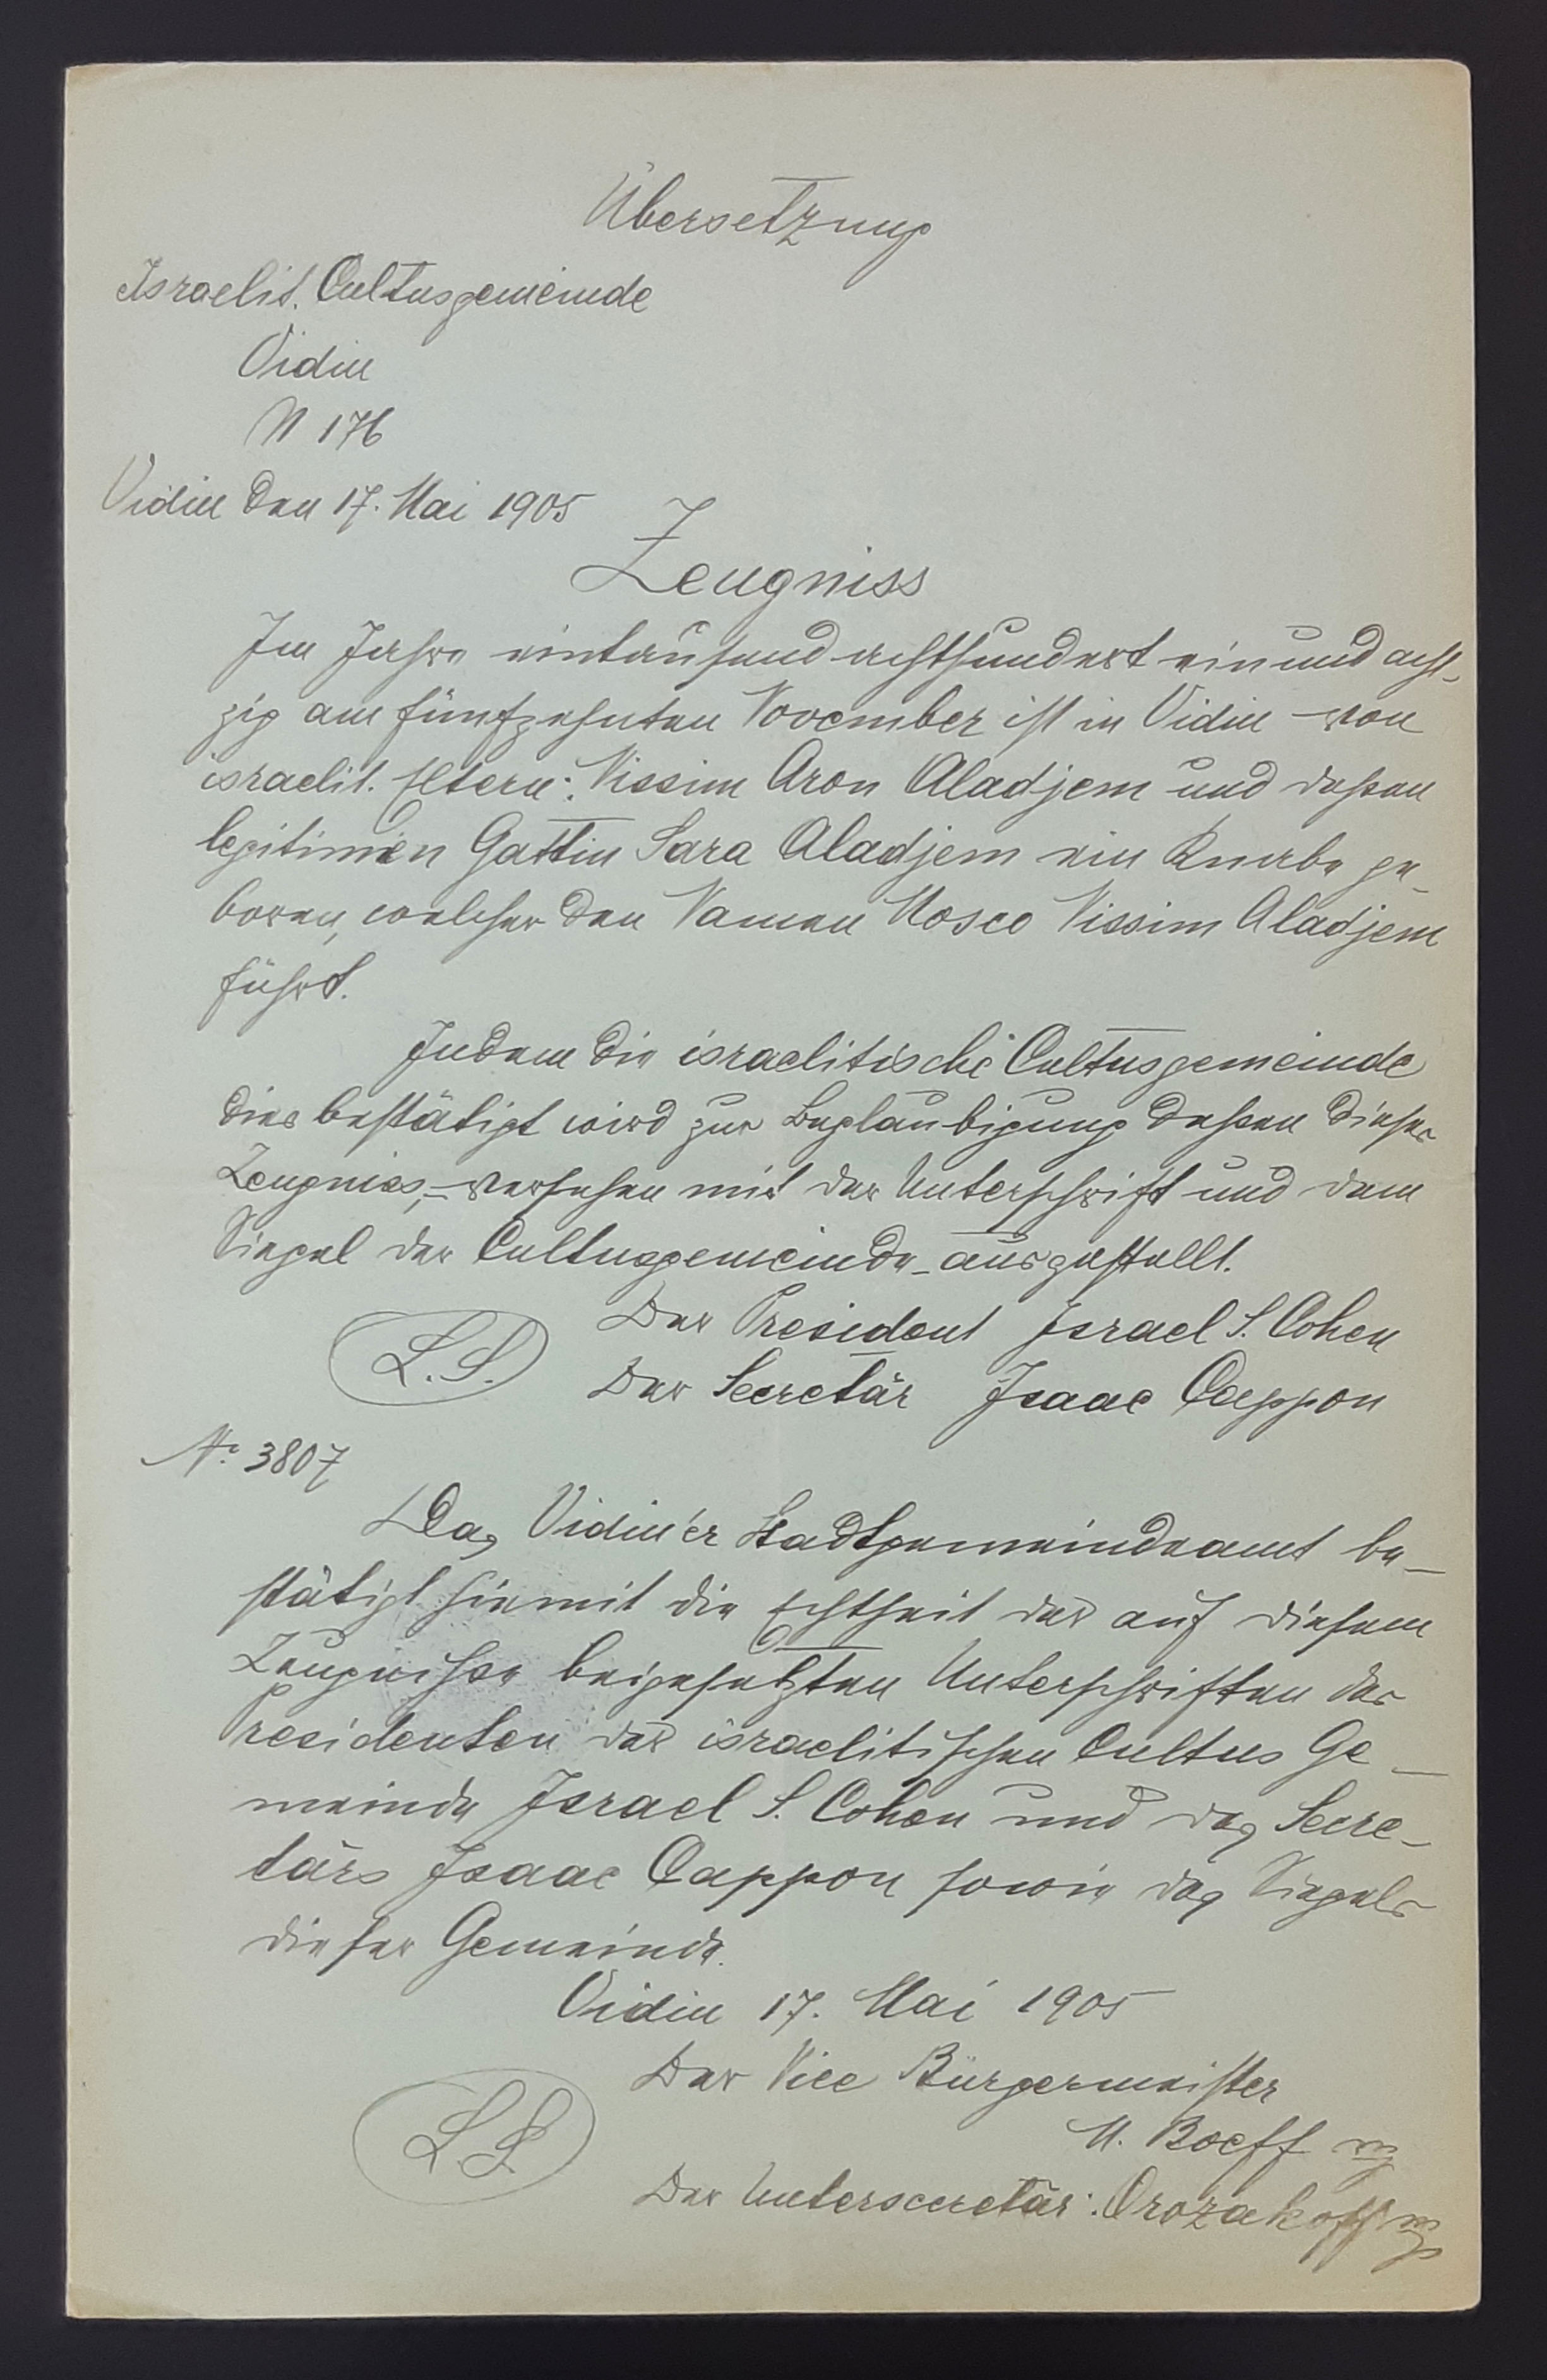 Übersetzung
Israelit. Cultusgemeinde
Vidin
N 176
Vidin den 17. Mai 1905
Zeugniss
Im Jahre eintausend achthundert ein und acht-
zig am fünfzehnten November ist in Vidin von
israelit. Eltern: Nissim Aron Aladjem und dessen
legitimen Gattin Sara Aladjem ein Knabe ge-
boren, welcher den Namen Mosco Nissim Aladjem
führt.
Indem die israelitische Cultusgemeinde
dies bestätigt wird zur Beglaubigung dessen dieses
Zeugniss, versehen mit der Unterschrift und dem
Siegel der Cultusgemeinde ausgestellt.
Der President Israel S. Cohen
L.S.
Der Secretär Isaac Cappon
No 3807
Das Vidin'er Stadtgemeindeamt be-
stätigt hiemit die Echtheit der auf diesem
Zeugnisse beigesetzten Unterschriften des
Presidenten der israelitischen Cultus Ge-
meinde Israel S. Cohen und des Secre-
tärs Isaac Cappon sowie des Siegels
dieser Gemeinde.
Vidin 17. Mai 1905
Der Vice Bürgermeister
M. Boeff
L.S.
Der Untersecretär: